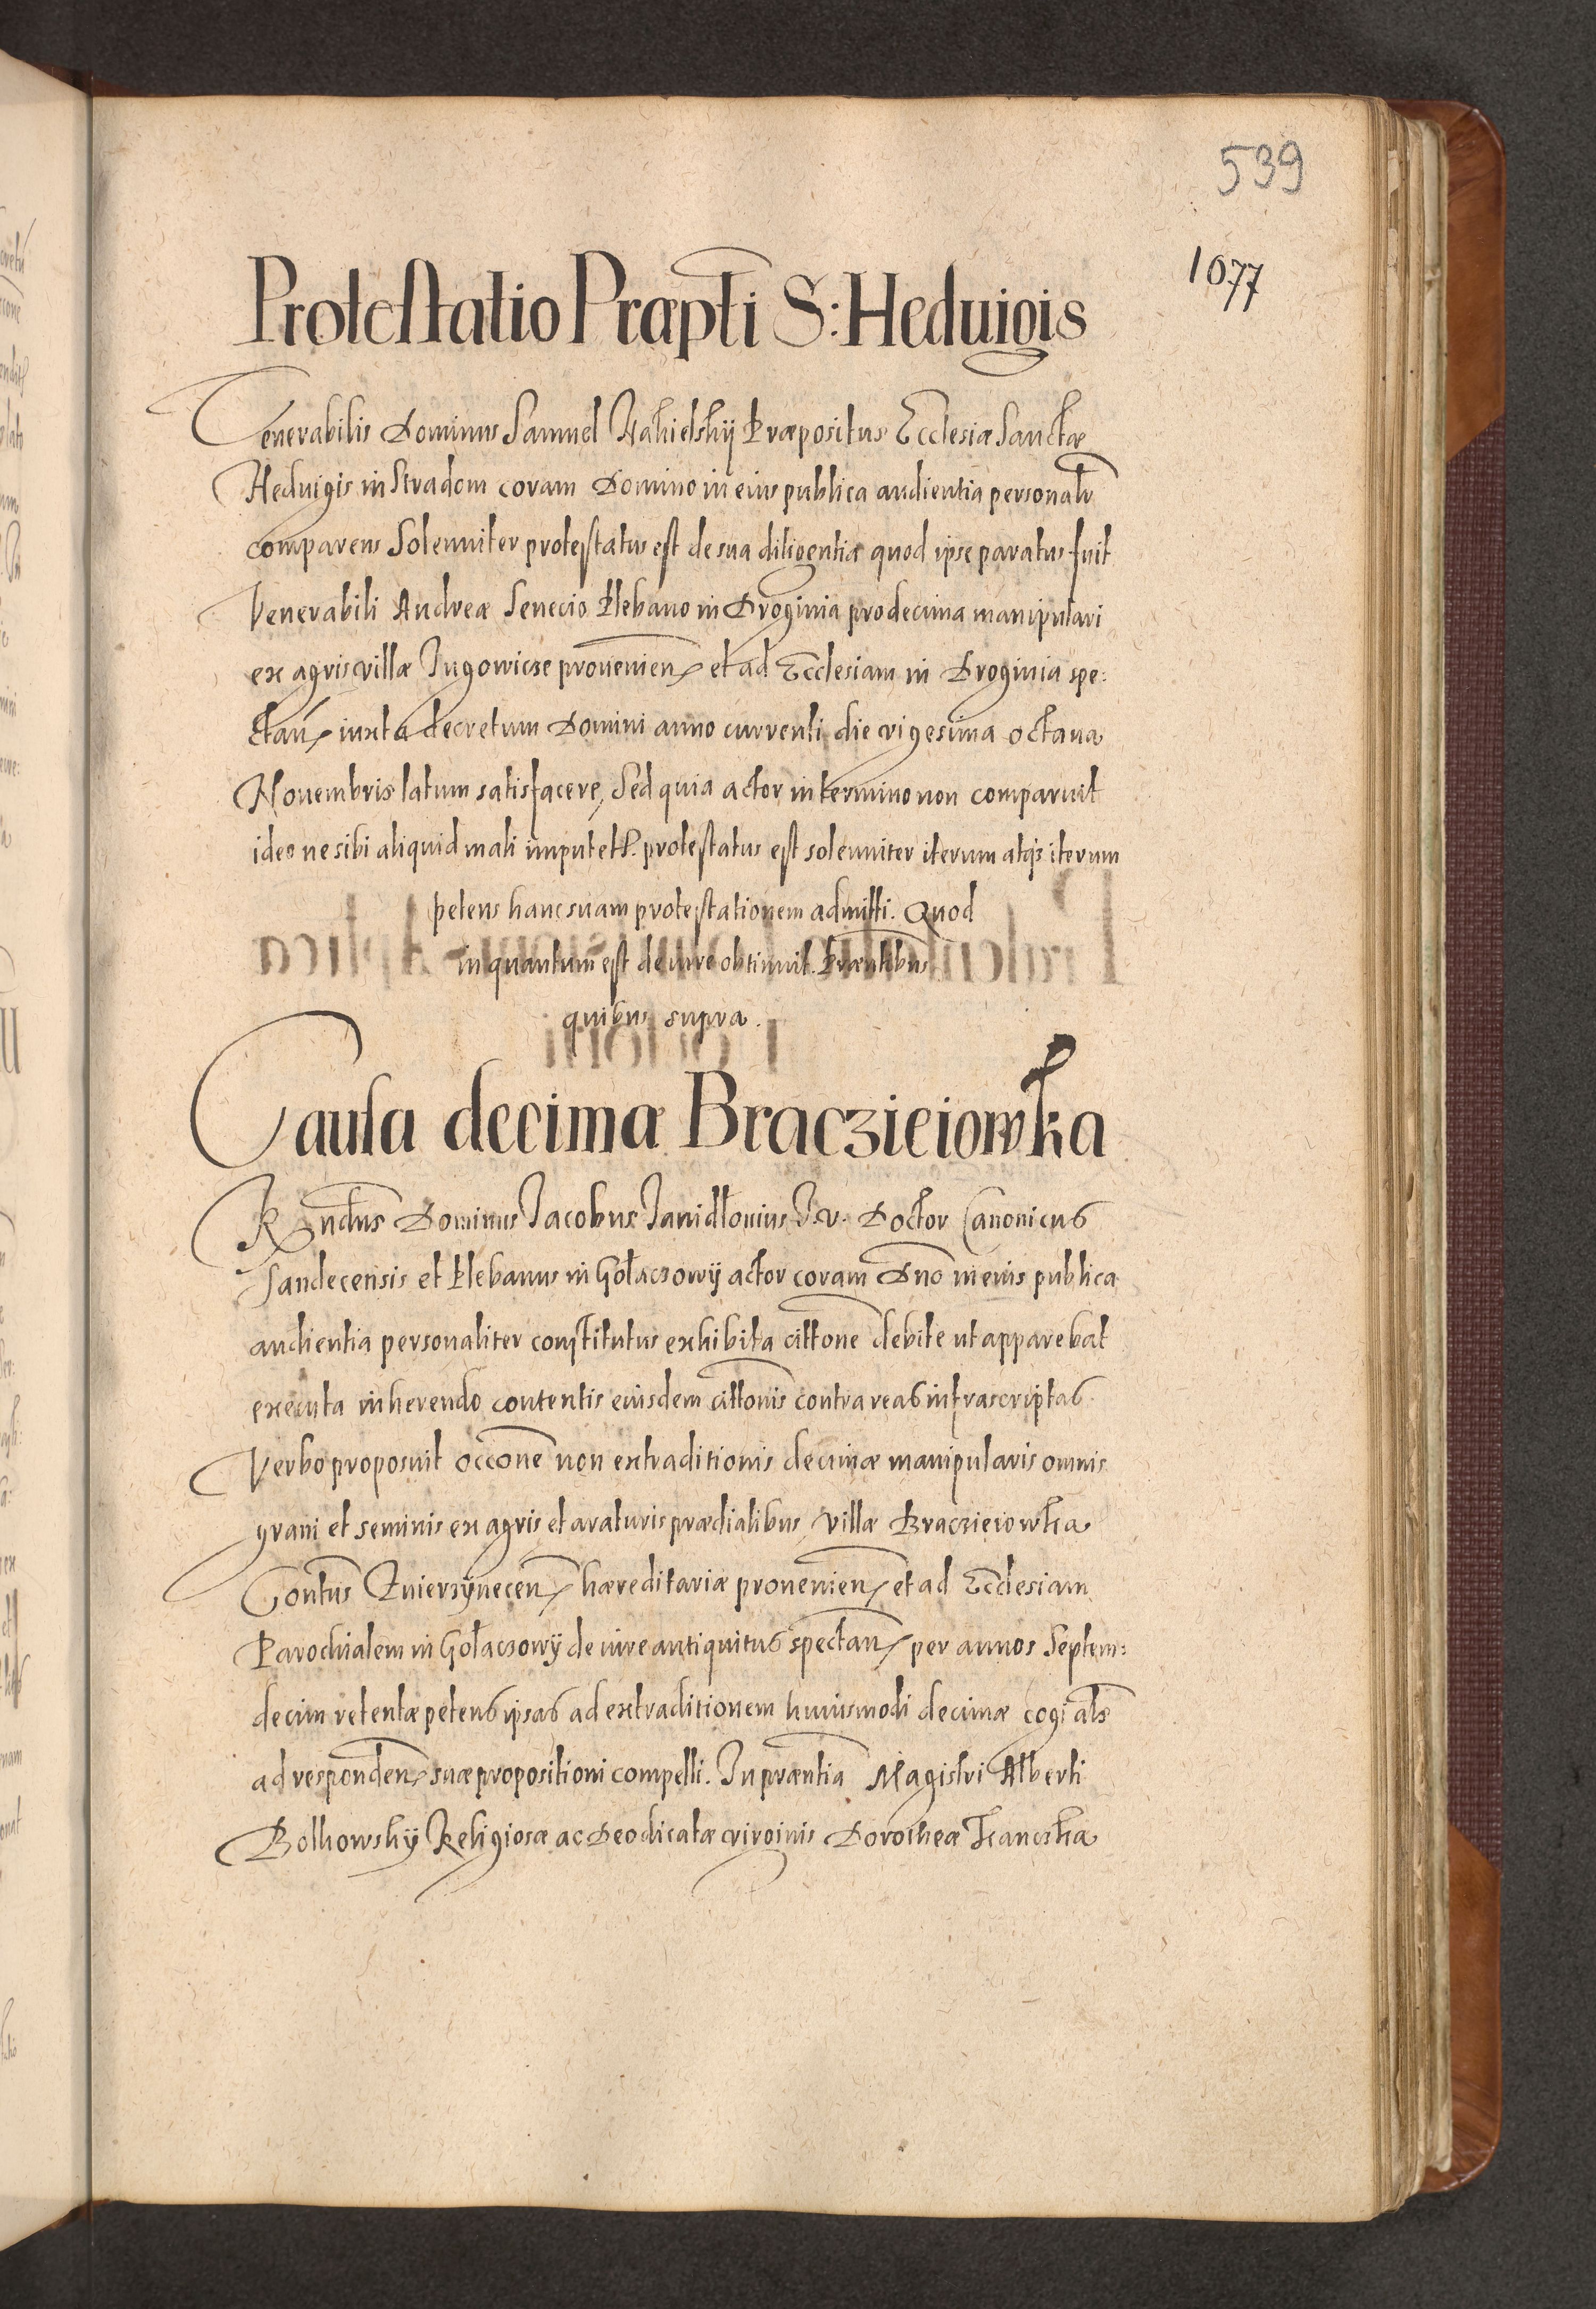 539
1077
Protestatio Præpti S: Heduigis
Venerabilis Dominus Samuel Nakielskÿ Præpositus Ecclesiæ Sanctæ
Heduigis in Stradom coram Domino in eius publica audientia personalr
comparens Solenniter protestatus est de sua diligentia quod ipse paratus fuit
Venerabili Andreæ Senecio Plebano in Droginia pro decima manipulari
ex agris villæ Jugowicze prouenien et ad Ecclesiam in Droginia spe:
ctan iuxta decretum Domini anno currenti die vigesima octaua
Nouembris latum satisfacere, Sed quia actor in termino non comparuit
ideo ne sibi aliquid mali imputetr. protestatus est solenniter iterum atqs iterum
petens hanc suam protestationem admitti. Quod
in quantum est de iure obtinuit. Præntibus
quibus supra.
Causa decimæ Braczieiowka
Rndus Dominus Jacobus Janidłouius J. v. Doctor Canonicus
Sandecensis et Plebanus in Gołaczowÿ actor coram Dno in eius publica
audientia personaliter constitutus exhibita cittone debite ut apparebat
executa inherendo contentis eiusdem cittonis contra reas infrascriptas
Verbo proposuit occone non extraditionis decimæ manipularis omnis
grani et seminis ex agris et araturis prædialibus villæ Braczieiowka
Contus Zuierzÿnecen hæreditariæ prouenien et ad Ecclesiam
Parochialem in Gołaczowÿ de iure antiquitus spectan per annos Septem:
decim retentæ petens ipsas ad extraditionem huiusmodi decimæ cogi als
ad responden suæ propositioni compelli. In præntia Magistri Alberti
Bolkowskÿ Religiosæ ac Deo dicatæ virginis Dorotheæ